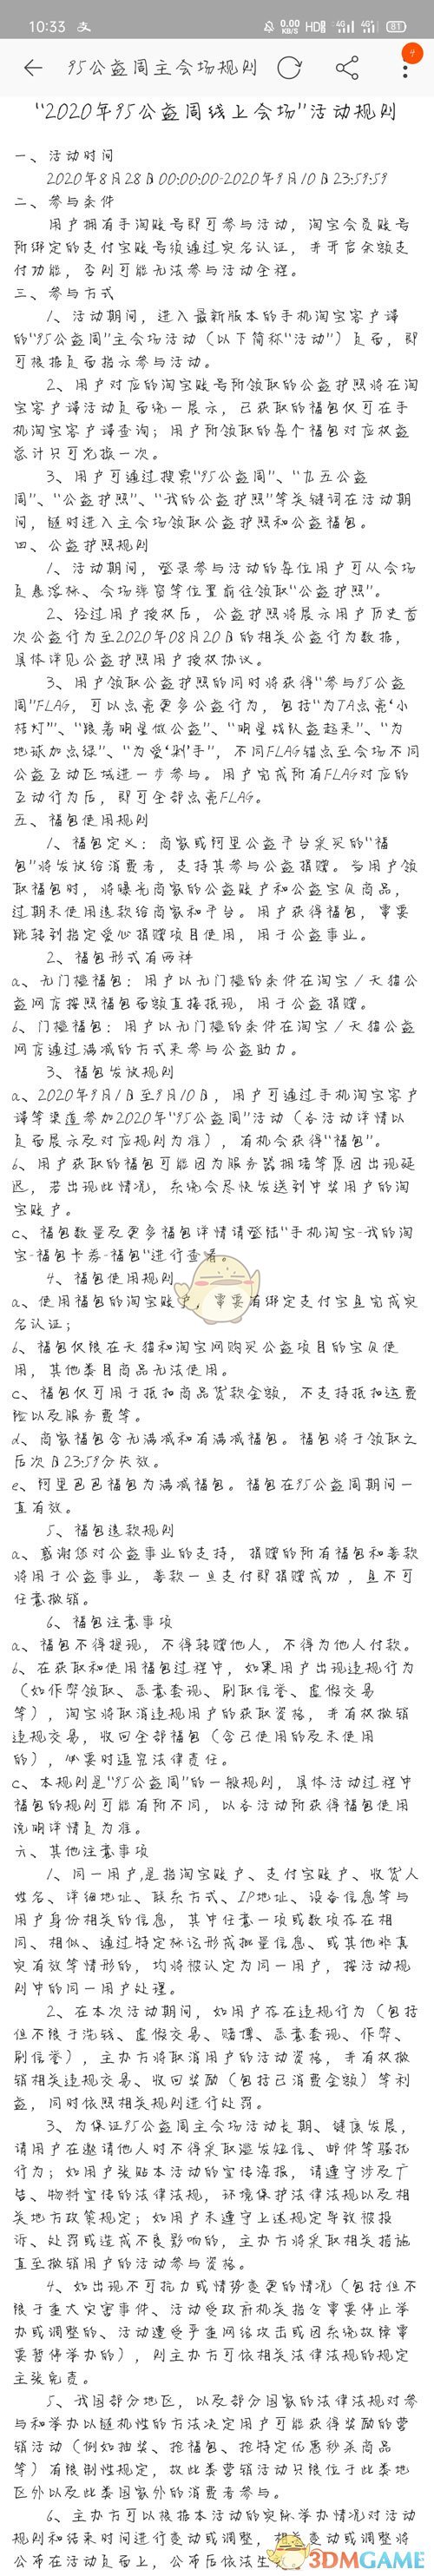 10:33
0.00
KB/S
HD
4G
4G
81
95公益周主会场规则
4
“2020年95公益周线上会场”活动规则
一、活动时间
2020年8月28日00:00:00-2020年9月10日23:59:59
二、参与条件
用户拥有手淘账号即可参与活动，淘宝会员账号
所绑定的支付宝账号须通过实名认证，并开启余额支
付功能，否则可能无法参与活动全程。
三、参与方式
1、活动期间，进入最新版本的手机淘宝客户端
的“95公益周”主会场活动（以下简称“活动”）页面，即
可根据页面指示参与活动。
2、用户对应的淘宝账号所领取的公益护照将在淘
宝客户端活动页面统一展示，已获取的福包仅可在手
机淘宝客户端查询；用户所领取的每个福包对应权益
总计只可兑换一次。
3、用户可通过搜索“95公益周”、“九五公益
周”、“公益护照”、“我的公益护照”等关键词在活动期
间，随时进入主会场领取公益护照和公益福包。
四、公益护照规则
1、活动期间，登录参与活动的每位用户可从会场
页悬浮标、会场弹窗等位置前往领取“公益护照”。
2、经过用户授权后，公益护照将展示用户历史首
次公益行为至2020年08月20日的相关公益行为数据，
具体详见公益护照用户授权协议。
3、用户领取公益护照的同时将获得“参与95公益
周”FLAG，可以点亮更多公益行为，包括“为TA点亮‘小
桔灯’”、“跟着明星做公益”、“明星战队益起来”、“为
地球加点绿”、“为爱‘剁’手”，不同FLAG锚点至会场不同
公益互动区域进一步参与。用户完成所有FLAG对应的
互动行为后，即可全部点亮FLAG。
五、福包使用规则
1、福包定义：商家或阿里公益平台采买的“福
包”将发放给消费者，支持其参与公益捐赠。当用户领
取福包时，将曝光商家的公益账户和公益宝贝商品，
过期未使用退款给商家和平台。用户获得福包，需要
跳转到指定爱心捐赠项目使用，用于公益事业。
2、福包形式有两种
a、无门槛福包：用户以无门槛的条件在淘宝/天猫公
益网店按照福包面额直接抵现，用于公益捐赠。
b、门槛福包：用户以无门槛的条件在淘宝/天猫公益
网店通过满减的方式来参与公益助力。
3、福包发放规则
a、2020年9月1日至9月10日，用户可通过手机淘宝客户
端等渠道参加2020年“95公益周”活动（各活动详情以
页面展示及对应规则为准），有机会获得“福包”。
b、用户获取的福包可能因为服务器拥堵等原因出现延
迟，若出现此情况，系统会尽快发送到中奖用户的淘
宝账户。
c、福包数量及更多福包详情请登陆“手机淘宝-我的淘
宝-福包卡券-福包”进行查看。
4、福包使用规则
a、使用福包的淘宝账户，需要有绑定支付宝且完成实
名认证；
b、福包仅限在天猫和淘宝网购买公益项目的宝贝使
用，其他类目商品无法使用。
c、福包仅可用于抵扣商品货款金额，不支持抵扣运费
险以及服务费等。
d、商家福包含无满减和有满减福包。福包将于领取之
后次日23:59分失效。
e、阿里巴巴福包为满减福包。福包在95公益周期间一
直有效。
5、福包退款规则
a、感谢您对公益事业的支持，捐赠的所有福包和善款
将用于公益事业，善款一旦支付即捐赠成功，且不可
任意撤销。
6、福包注意事项
a、福包不得提现，不得转赠他人，不得为他人付款。
b、在获取和使用福包过程中，如果用户出现违规行为
（如作弊领取、恶意套现、刷取信誉、虚假交易
等），淘宝将取消违规用户的获取资格，并有权撤销
违规交易，收回全部福包（含已使用的及未使用
的），必要时追究法律责任。
c、本规则是“95公益周”的一般规则，具体活动过程中
福包的规则可能有所不同，以各活动所获得福包使用
说明详情页为准。
六、其他注意事项
1、同一用户，是指淘宝账户、支付宝账户、收货人
姓名、详细地址、联系方式、IP地址、设备信息等与
用户身份相关的信息，其中任意一项或数项存在相
同、相似、通过特定标记形成批量信息、或其他非真
实有效等情形的，均将被认定为同一用户，按活动规
则中的同一用户处理。
2、在本次活动期间，如用户存在违规行为（包括
但不限于洗钱、虚假交易、赌博、恶意套现、作弊、
刷信誉），主办方将取消用户的活动资格，并有权撤
销相关违规交易、收回奖励（包括已消费金额）等利
益，同时依照相关规则进行处罚。
3、为保证95公益周主会场活动长期、健康发展，
请用户在邀请他人时不得采取滥发短信、邮件等骚扰
行为；如用户张贴本活动的宣传海报，请遵守涉及广
告、物料宣传的法律法规，环境保护法律法规以及相
关地方政策规定；如用户未遵守上述规定导致被投
诉、处罚或造成不良影响的，主办方将采取相关措施
直至撤销用户的活动参与资格。
4、如出现不可抗力或情势变更的情况（包括但不
限于重大灾害事件、活动受政府机关指令需要停止举
办或调整的、活动遭受严重网络攻击或因系统故障需
要暂停举办的），则主办方可依相关法律法规的规定
主张免责。
5、我国部分地区，以及部分国家的法律法规对参
与和举办以随机性的方法决定用户可能获得奖励的营
销活动（例如抽奖、抢福包、抢特定优惠秒杀商品
等）有限制性规定，故此类营销活动只限位于此类地
区外以及此类国家外的消费者参与。
6、主办方可以根据本活动的实际举办情况对活动
规则和结束时间进行变动或调整，相关变动或调整将
公布在活动页面上，公布后依法生
3DMGAME